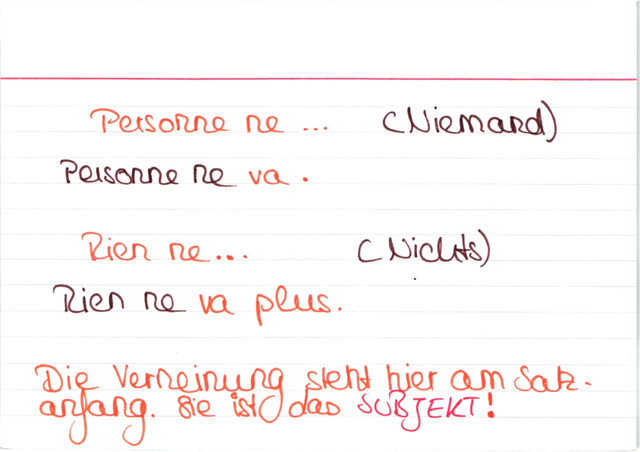 Personne ne ... (Niemand)
Personne ne va.
Rien ne... (Nichts)
Rien ne va plus.
Die Verneinung steht hier am Satz-
anfang. Sie ist das SUBJEKT!